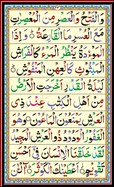 وَالْفَتْحُ وَالْعَصْرِ مِنَ الْمُعْصِرٰتِ
مَعَ الْعُسْرِ مَا الْقَارِعَةُ وَاِذَا
الْمَوْءٗدَةُ يَنْظُرُ الْمَرْءُ كَالْفَرَاشِ
الْمَبْثُوْثِ كَالْعِهْنِ الْمَنْفُوْشِ
لَيْلَةُ الْقَدْرِ اَخْرَجَتِ الْاَرْضُ
مِنْ اَهْلِ الْكِتٰبِ عِنْدَ ذِى
الْعَرْشِ يَمْنَعُوْنَ الْمَاعُوْنَ وَهُوَ
الْغَفُوْرُ الْوَدُوْدُ ذُو الْعَرْشِ الْمَجِيْدُ
لَقَدْ خَلَقْنَا الْاِنْسَانَ فِىْٓ اَحْسَنِ
تَقْوِيْمٍ